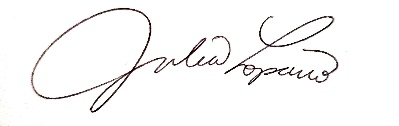 Julia Lopano